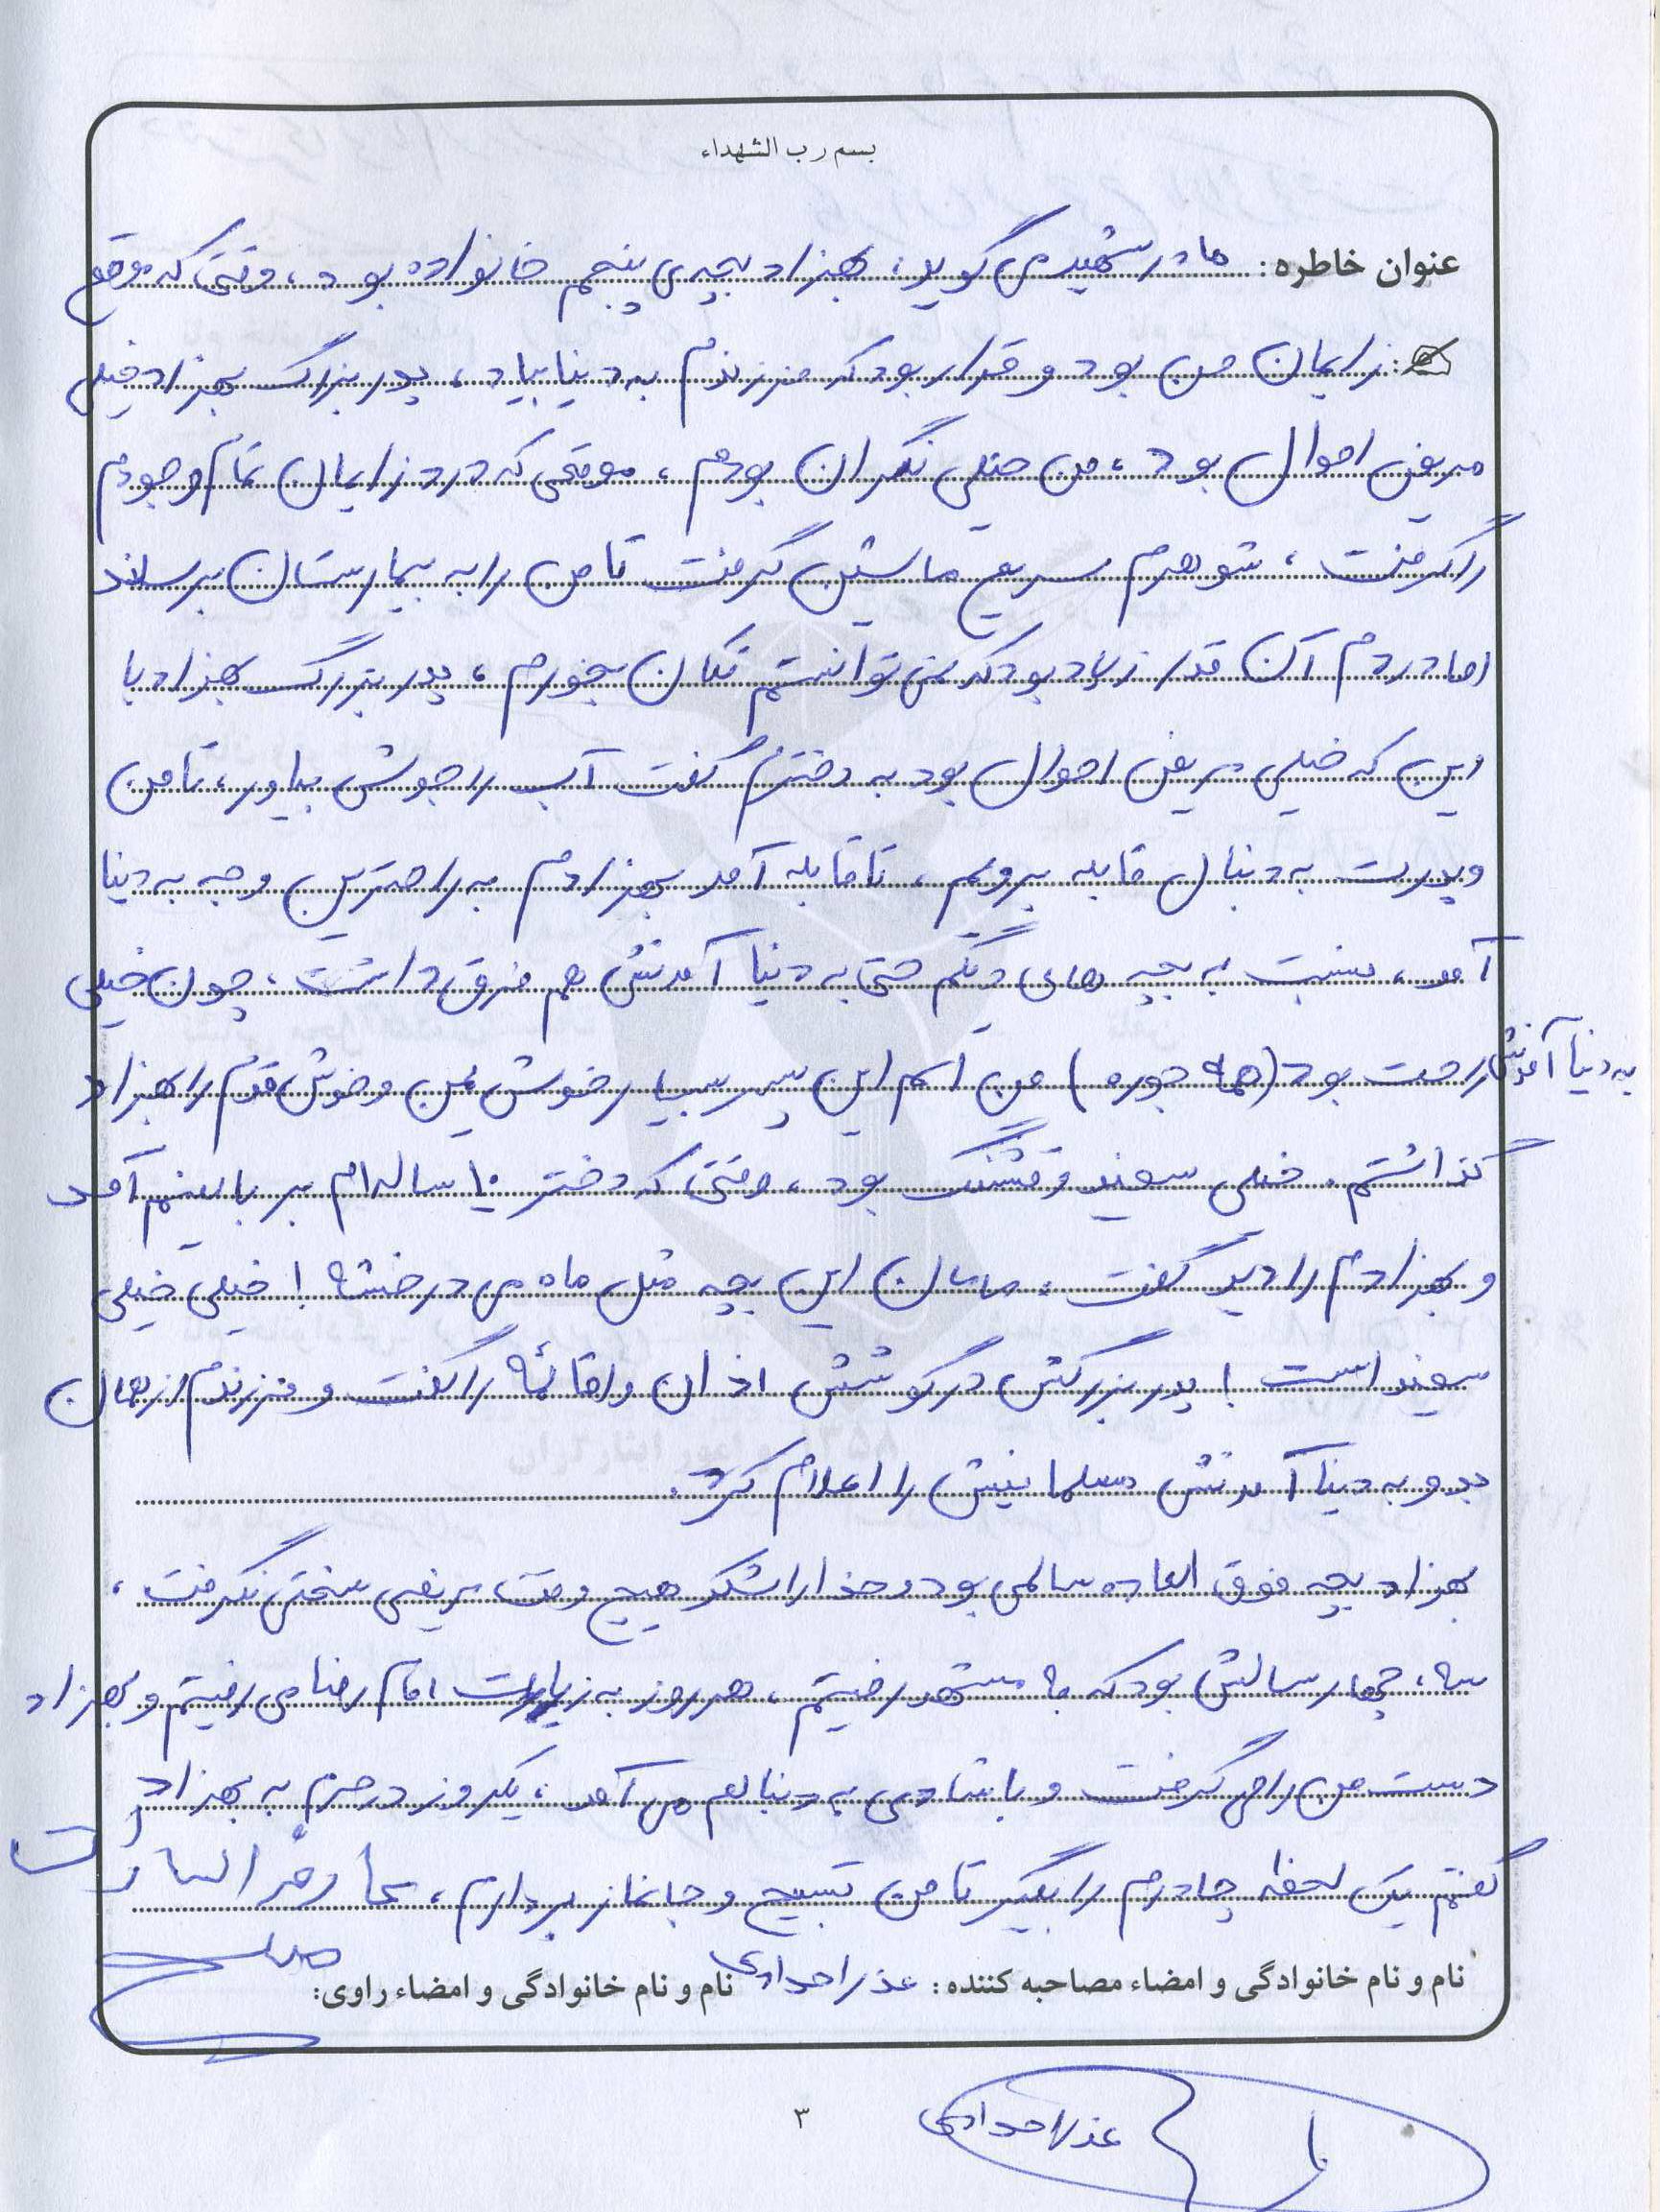 بسم رب الشهداء
عنوان خاطره: مادر شهید می گوید، بهزاد بچه ی پنجم خانواده بود، وقتی که موقع
زایمان من بود و قرار بود که فرزندم به دنیا بیاد، پدر بزرگ بهزاد خیلی
مریض احوال بود، من خیلی نگران بودم، موقعی که درد زایمان تمام وجودم
را گرفت، شوهرم سریع ماشین گرفت تا من را به بیمارستان برساند
اما دردم آن قدر زیاد بود که نمی توانستم تکان بخورم، پدر بزرگ بهزاد با
این که خیلی مریض احوال بود به دخترم گفت آب را جوش بیاور، تا من
و پدرت به دنبال قابله برویم، تا قابله آمد بهزادم به راحترین وجه به دنیا
آمد، نسبت به بچه های دیگم حتی به دنیا آمدنش هم فرق داشت، چون خیلی
به دنیا آمدنش راحت بود (همه جوره) من اسم این پسر بسیار خوش یمن و خوش قدم را بهزاد
گذاشتم. خیلی سفید و قشنگ بود، وقتی که دختر ۱۰ ساله ام بر بالینم آمد
و بهزادم را دید گفت: مامان این بچه مثل ماه می درخشه! خیلی خیلی
سفید است! پدر بزرگش در گوشش اذان و اقامه را گفت و فرزندم از همان
بدو به دنیا آمدنش مسلمانیش را اعلام کرد.
بهزاد بچه فوق العاده سالمی بود و خدا را شکر هیچ وقت مریضی سختی نگرفت،
سه، چهار سالش بود که ما مشهد رفتیم، هر روز به زیارت امام رضا می رفتیم و بهزاد
دست من را می گرفت و با شادی به دنبالم می آمد، یکروز در حرم به بهزاد
گفتم یک لحظه چادرم را بگیر تا من تسبیح و جانماز بردارم،
نام و نام خانوادگی و امضاء مصاحبه کننده: عذرا حدادی نام و نام خانوادگی و امضاء راوی:
عذرا حدادی
۳